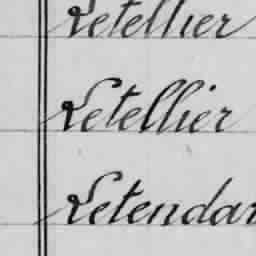 Letellier
Letellier
Letendar